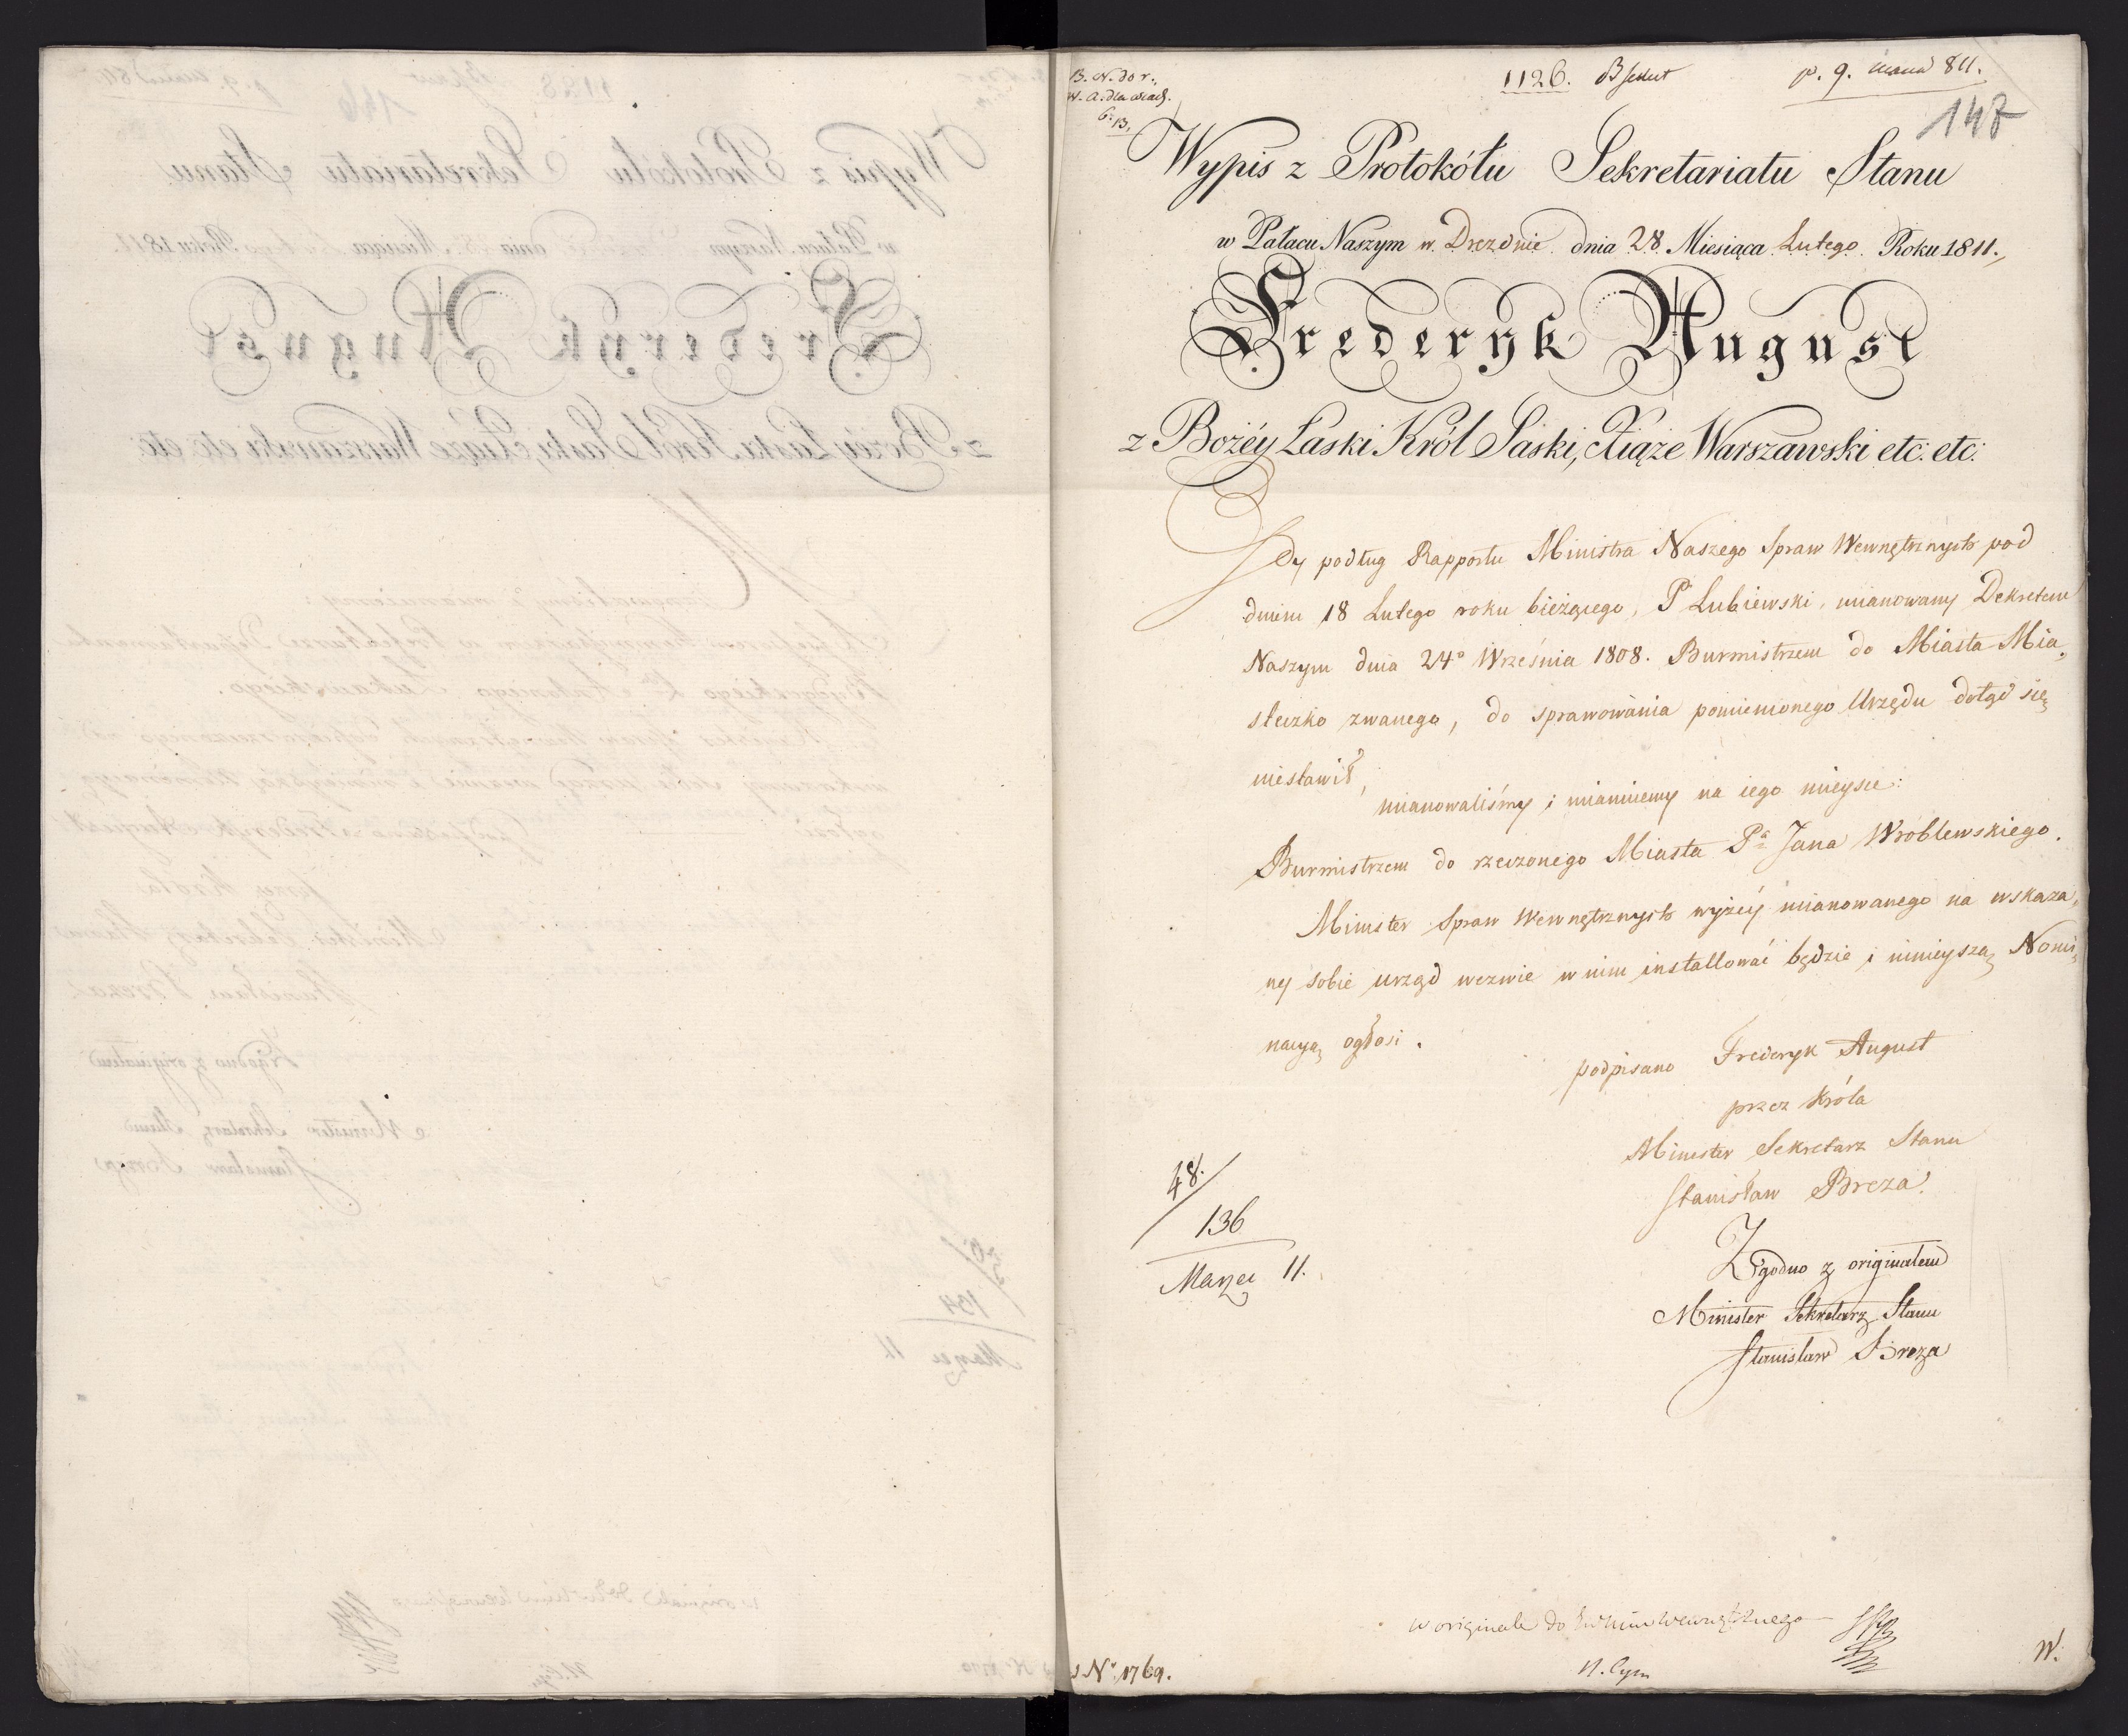 B. N. do r.
W. A. dla wiad.
6. B.
1126. p. 9. marca 811.
147
Wypis z Protokółu Sekretariatu Stanu
w Pałacu Naszym w Dreznie dnia 28 Miesiąca Lutego Roku 1811.
Frederyk August
z Bożéy Łaski Król Saski, Xiąże Warszawski etc: etc:
Gdy podług Rapportu Ministra Naszego Spraw Wewnętrznych pod
dniem 18 Lutego roku bieżącego, P. Lubiewski, mianowany Dekretem
Naszym dnia 24° Września 1808. Burmistrzem do Miasta Mia„
steczko zwanego, do sprawowania pomienionego Urzędu dotąd się
niestawił,
mianowaliśmy i mianuiemy na iego mieysce:
Burmistrzem do rzeczonego Miasta Pa Jana Wroblewskiego.
Minister Spraw Wewnętrznych wyżéy mianowanego na wskaza„
ny sobie urząd wezwie w nim installować będzie i ninieyszą Nomi„
nacyą ogłosi.
podpisano Frederyk August
przez Króla
Minister Sekretarz Stanu
Stanisław Breza.
48./
136
Marzec 11.
Zgodno z originałem
Minister Sekretarz Stanu
Stanisław Breza
w originale do wewnętrznego
s N° 1769.
W.